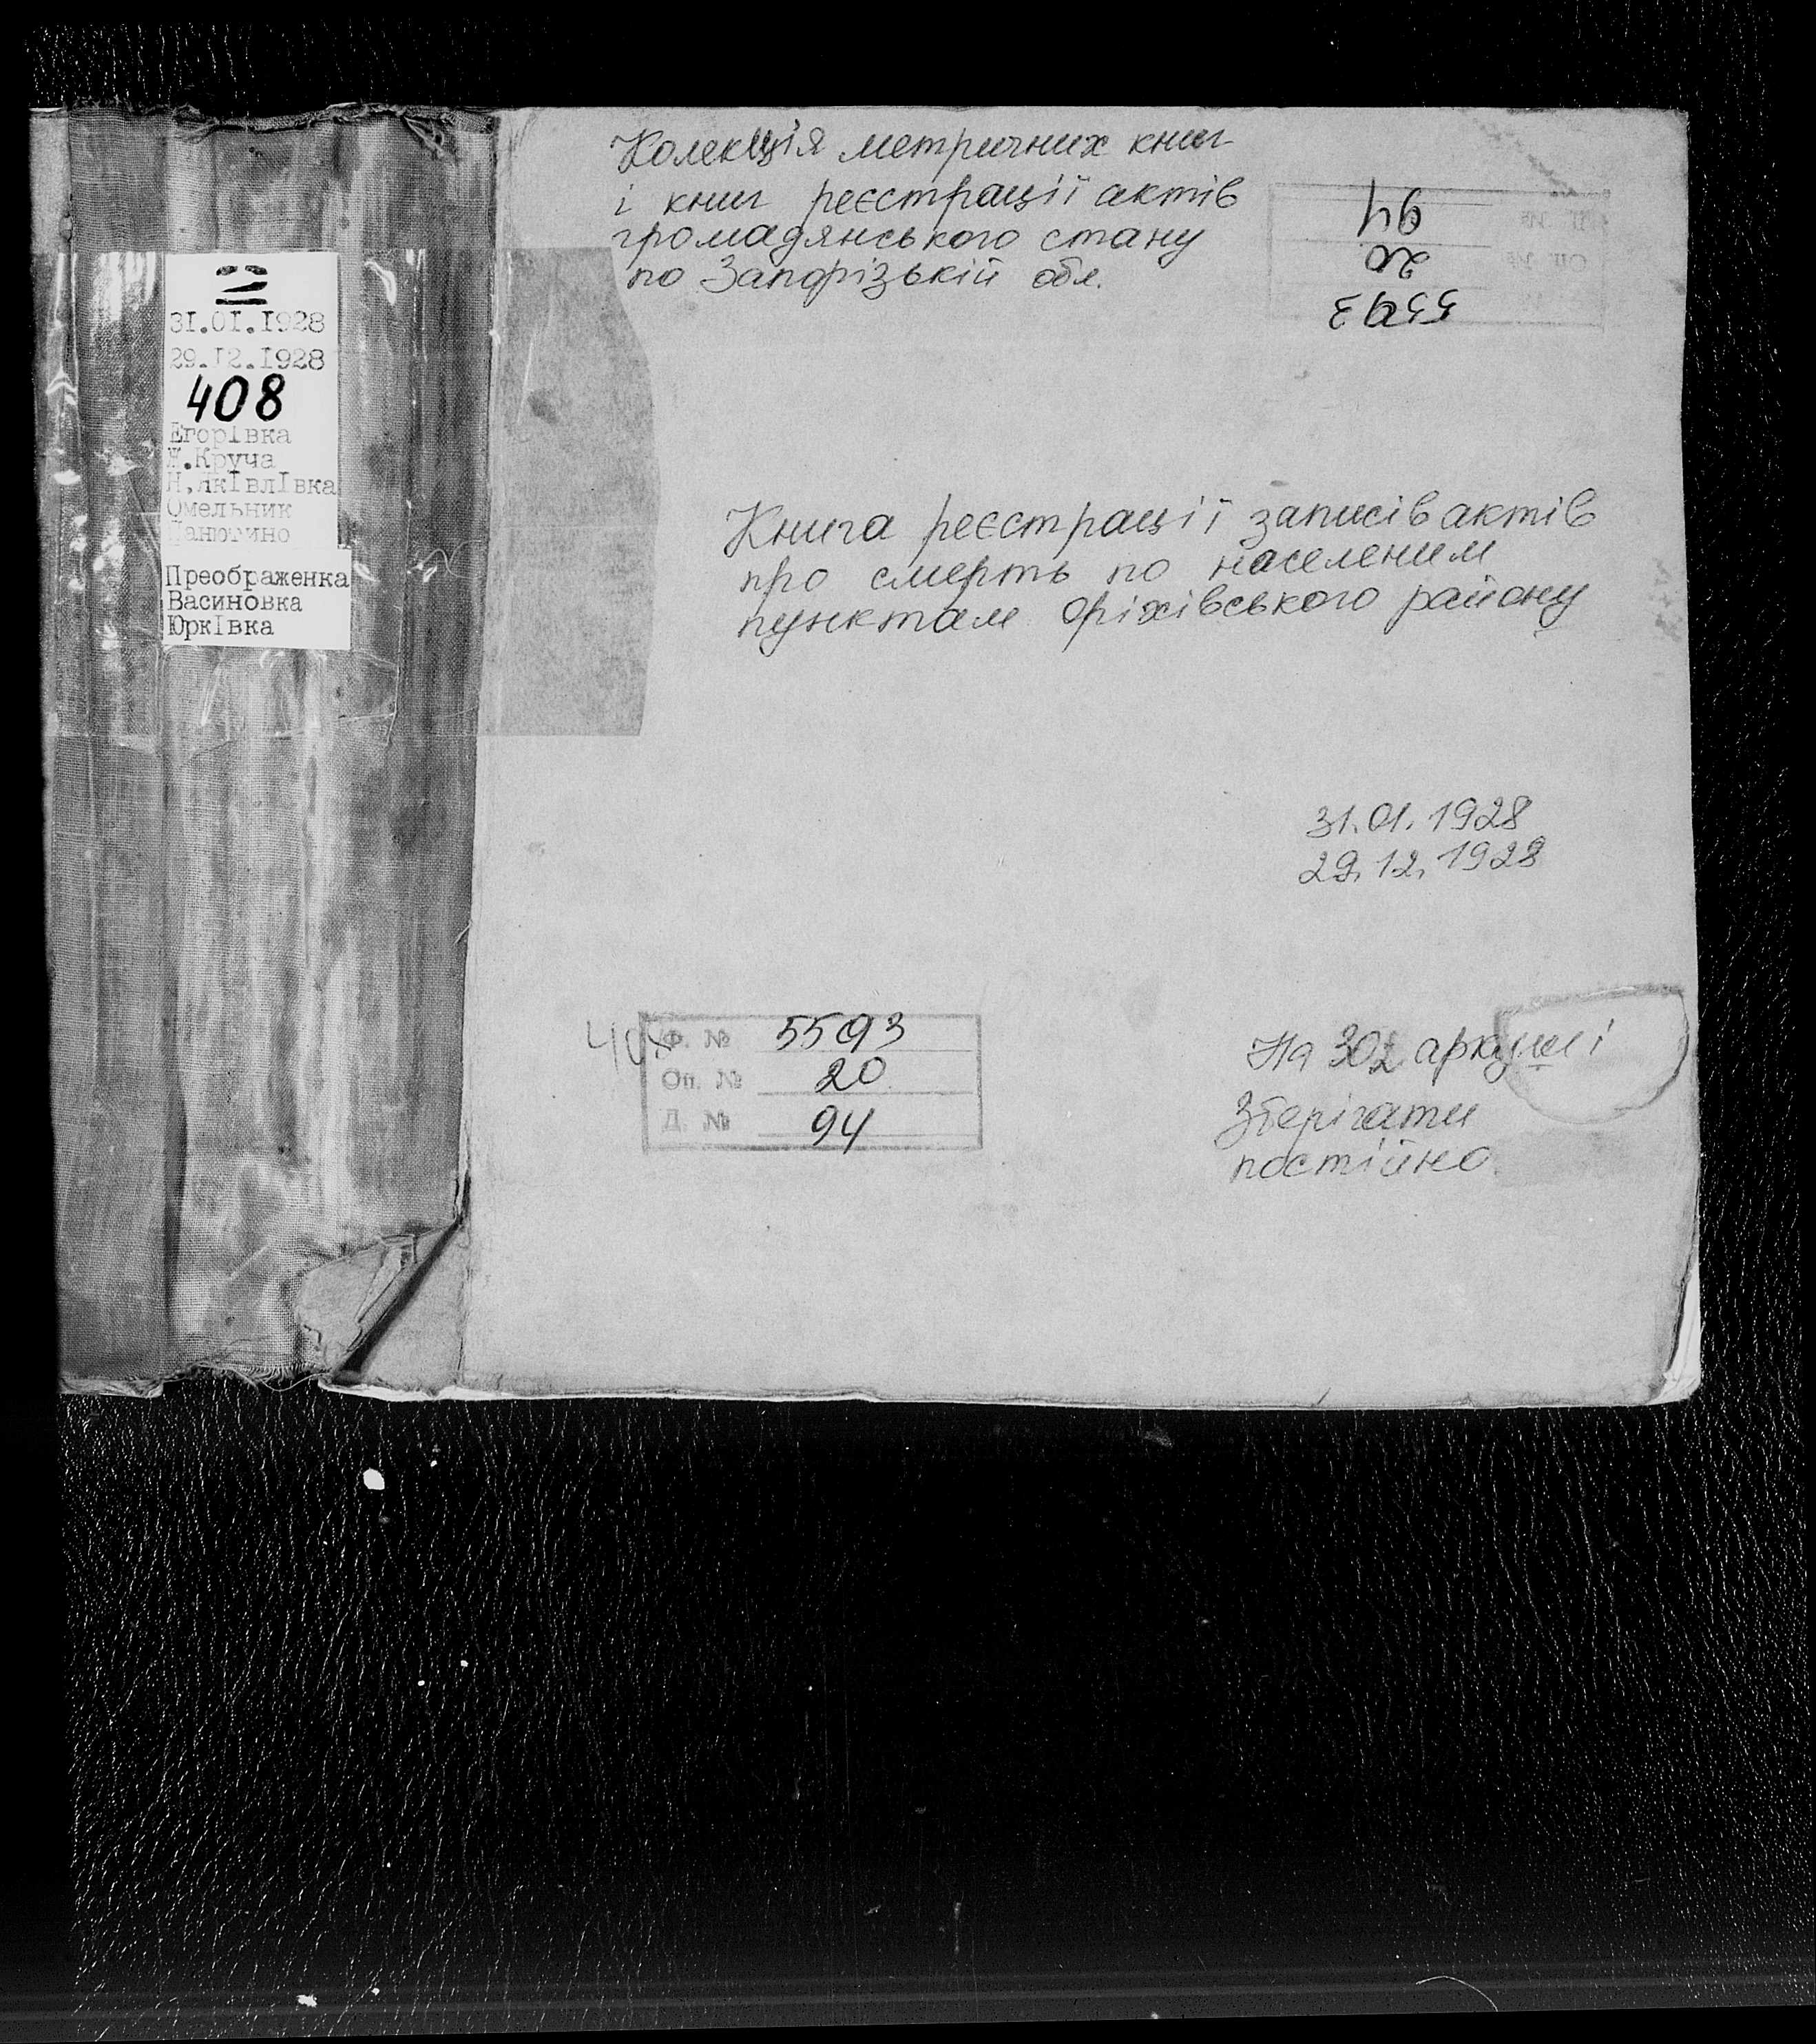 Колекція метричних книг
і книг реєстрації актів
громадянського стану
по Запорізькій обл.
94
20
5593
31.01.1928
29.12.1928
408
ЕгорІвка
Ж.Круча
Н,якІвлІвка
Омельник
Панютино
Преображенка
Васиновка
ЮркІвка
Книга реєстрації записів актів
про смерть по населеним
пунктам Оріхівського району
31.01.1928
29.12.1928
408
Ф. № 5593
Оп. № 20
Д. № 94
На 302 аркуші
Зберігати
постійно